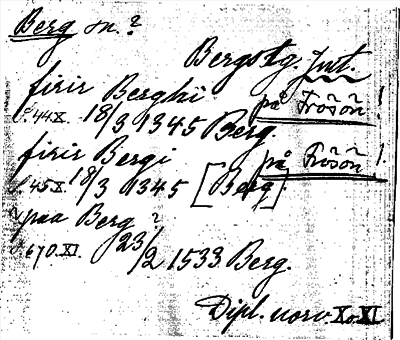 Berg sn. ?
Bergstg. Jmt.
firir Berghi på Frösön !
44 X. 18/3 1345 Berg.
firir Bergi på Frösön !
45 X. 18/3 1345 [Berg].
paa Berg ?
670. XI. 23/2 1533. Berg.
Dipl. norv X o. XI